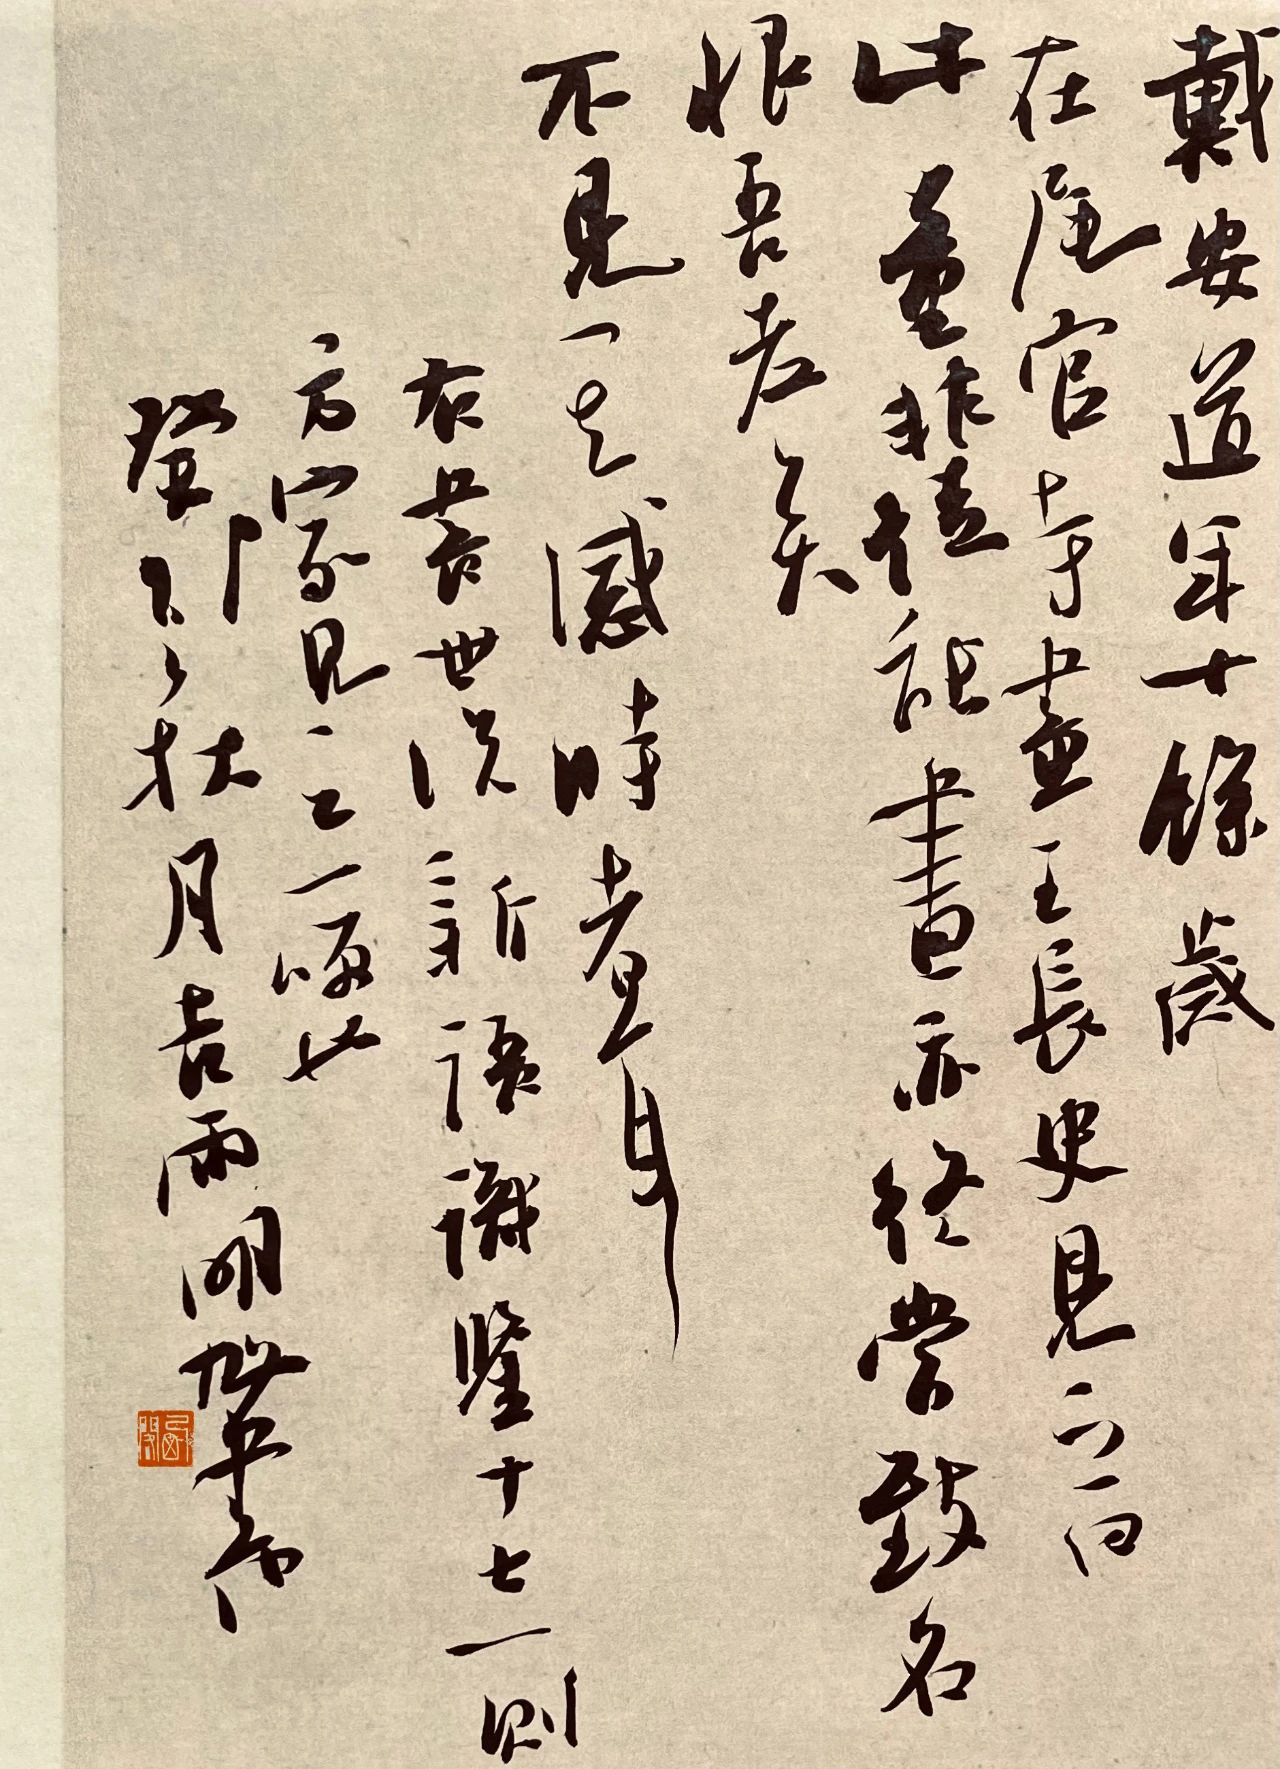 戴安道年十餘歲
在瓦官寺畫王長史見之曰
此童非徒能畫亦終當致名
恨吾老矣
不見其盛時者耳
右書世説新語識鑒十七一則
方家見之一哂也
癸卯之秋月吉雨明